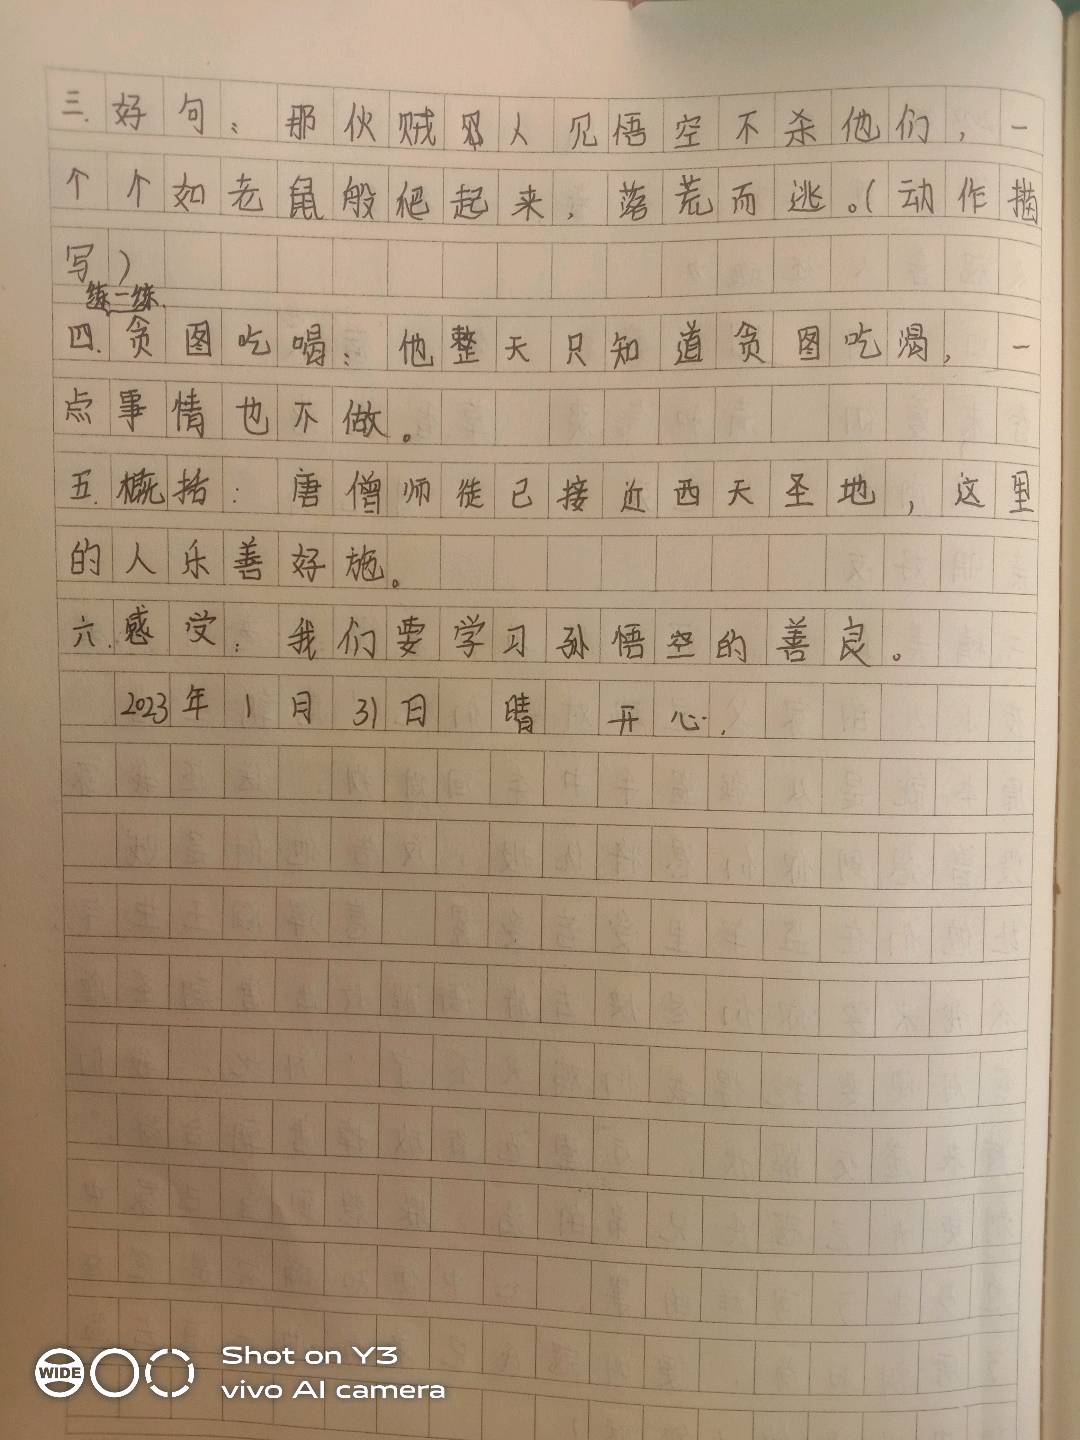 三.好句：那伙贼人见悟空不杀他们，一
个个如老鼠般爬起来，落荒而逃。（动作描
写）
练一练.
四.贪图吃喝：他整天只知道贪图吃喝，一
点事情也不做。
五.概括：唐僧师徒已接近西天圣地，这里
的人乐善好施。
六.感受：我们要学习孙悟空的善良。
2023年1月31日 晴 开心.
WIDE
Shot on Y3
vivo AI camera